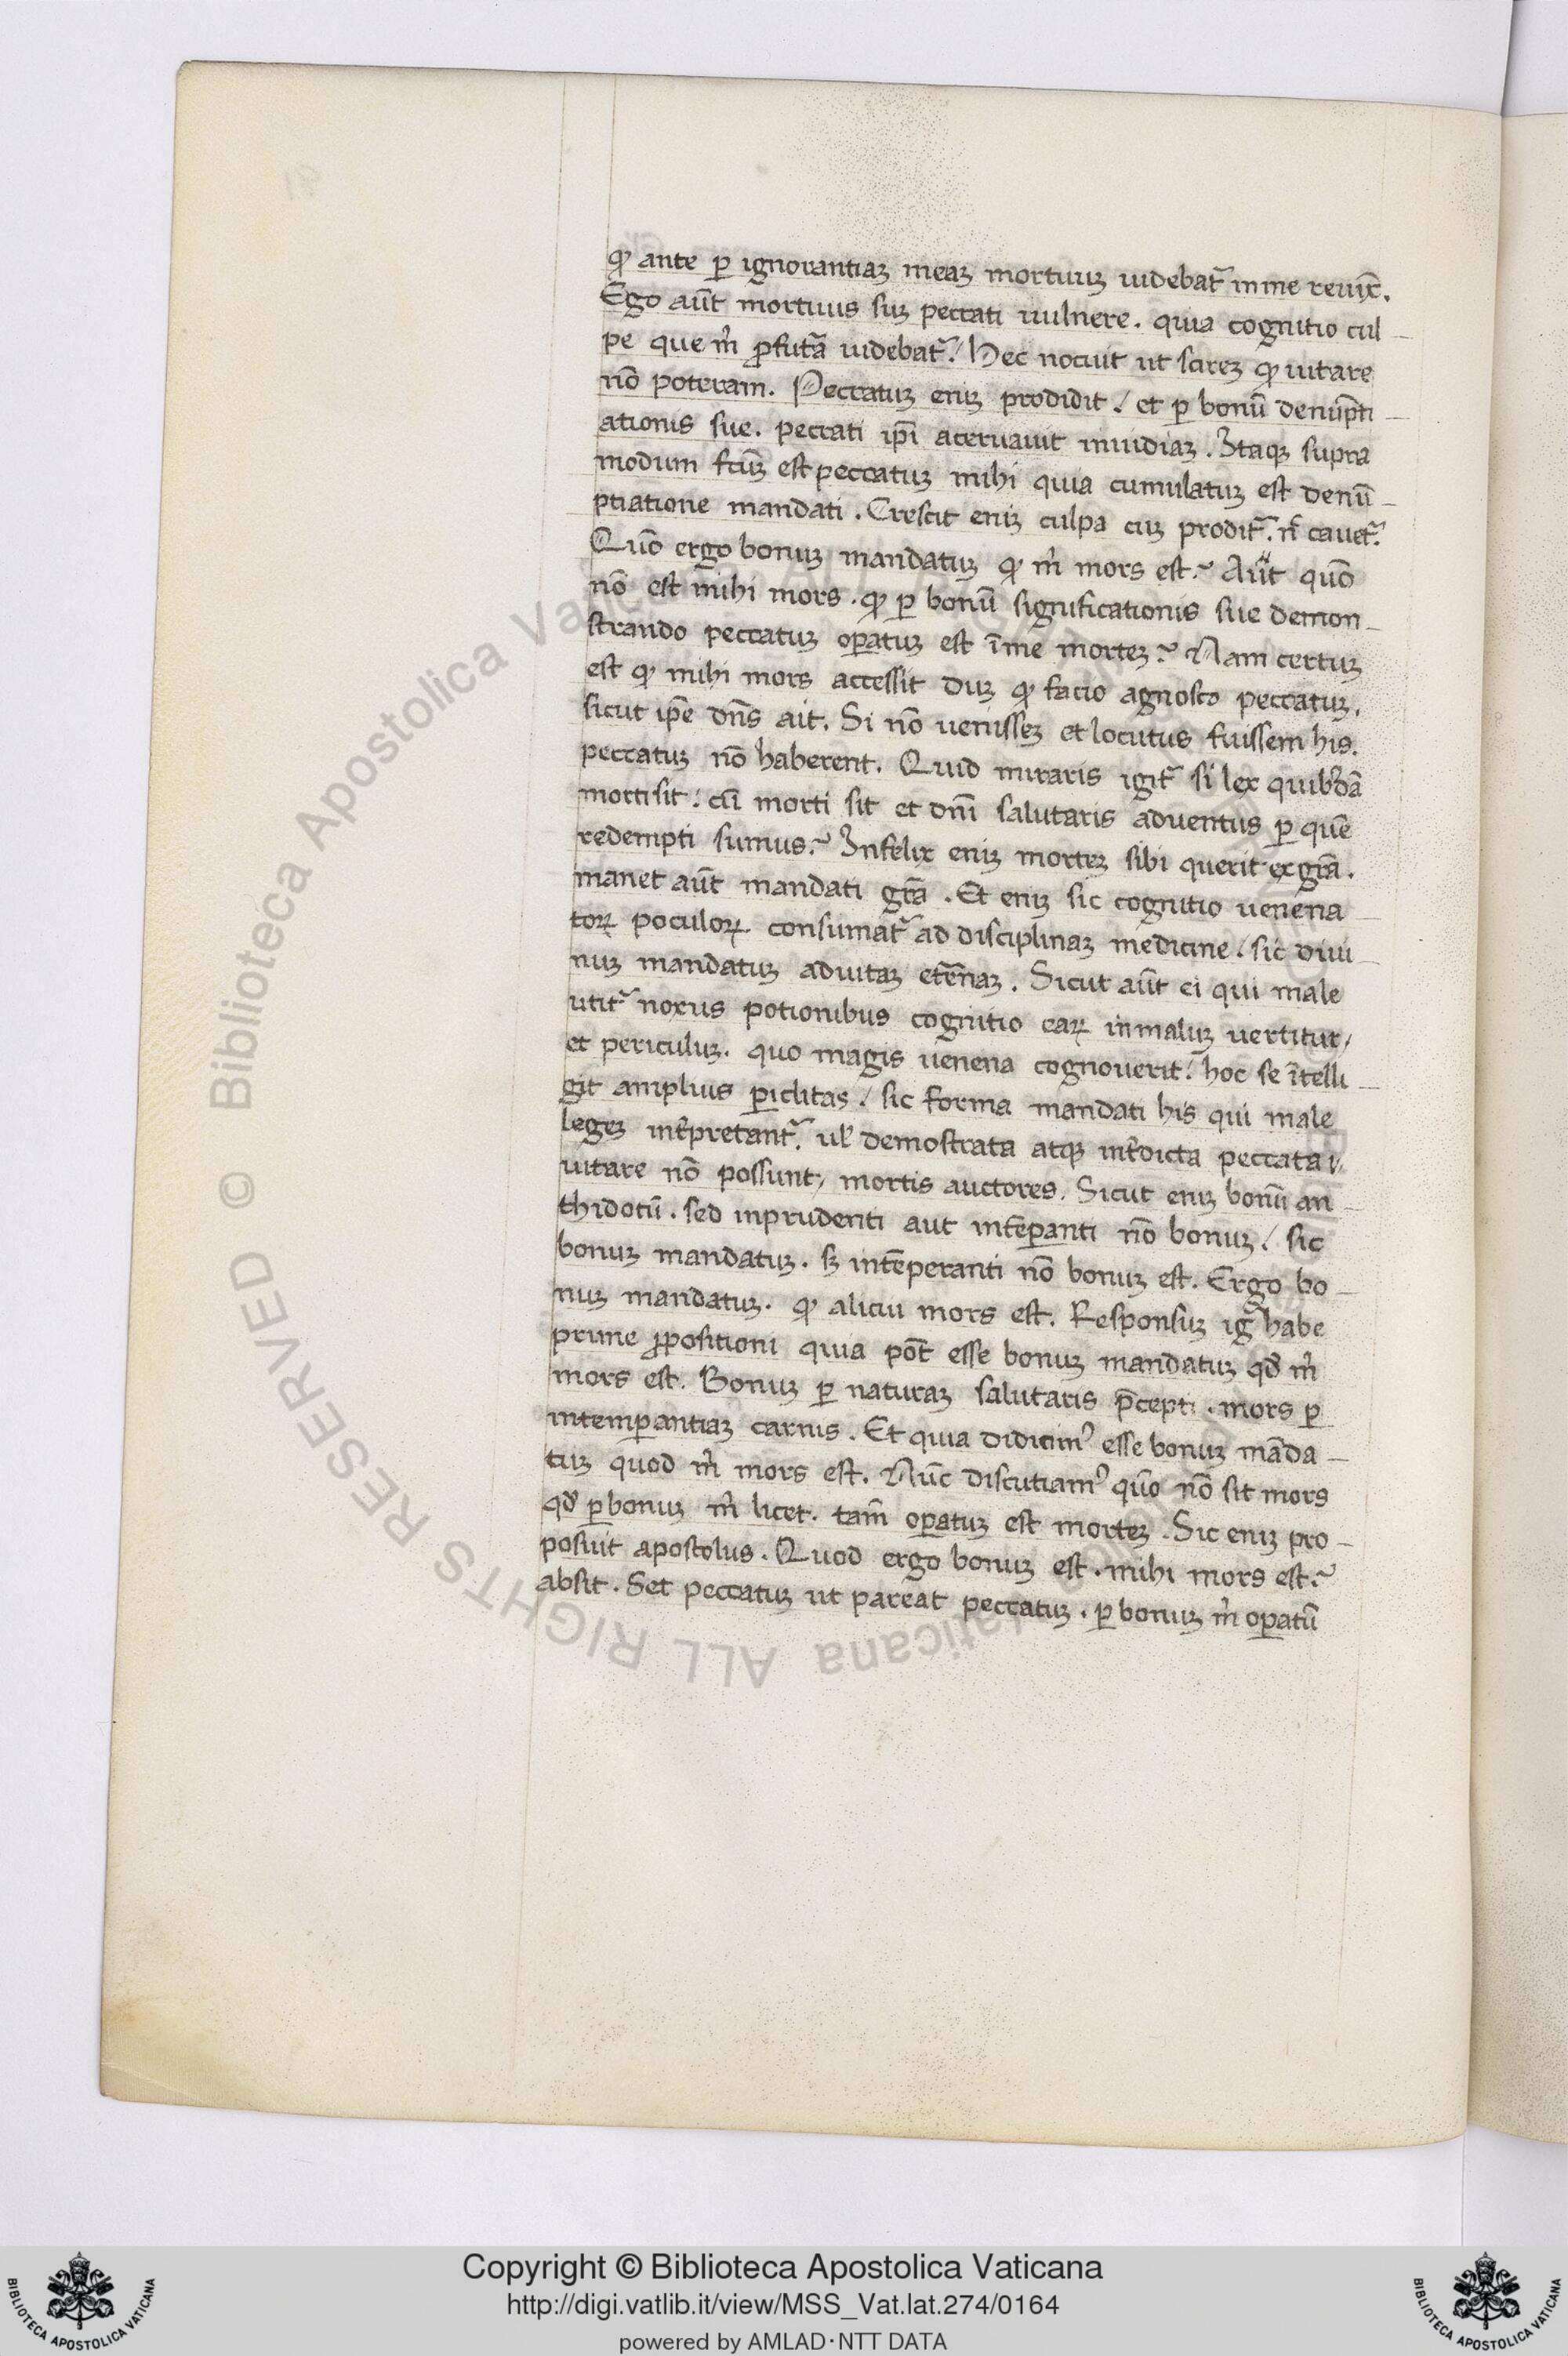 qꝫ ante ꝑ ignorantiaꝫ meaꝫ mortuuꝫ uidebat᷑ in me reuix̄.
Ego aūt mortuus suꝫ peccati uulnere. quia cognitio cul
pe que m̄ ꝓfutā uidebat᷑ / Hec nocuit ut scireꝫ qꝫ uitare
nō poteram. Peccatuꝫ eniꝫ prodidit / et ꝑ bonū denūpti
ationis sue. peccati ip̄i aceruauit inuidiaꝫ. Itaqꝫ supra
modum fcūꝫ est peccatuꝫ mihi quia cumulatuꝫ est denū
ptiatione mandati. Crescit eniꝫ culpa cuꝫ prodit᷑. n̄ cauet᷑.
Quō ergo bonuꝫ mandatuꝫ qꝫ m̄ mors est? Aūt quō
nō est mihi mors. qꝫ ꝑ bonū significationis sue demon
strando peccatuꝫ oꝑatuꝫ est ī me morteꝫ? Nam certuꝫ
est qꝫ mihi mors accessit duꝫ qꝫ facio agnosco peccatuꝫ.
sicut ip̄e dn̄s ait. Si nō uenisseꝫ et locutus fuissem his.
peccatuꝫ nō haberent. Quid miraris igit᷑ si lex quibꝰdā
morti sit: cū morti sit et dn̄i salutaris aduentus ꝑ quē
redempti sumus? Infelix eniꝫ morteꝫ sibi querit ex grā.
manet aūt mandati grā. Et eniꝫ sic cognitio uenena
toꝝ poculoꝝ consumat᷑ ad disciplinaꝫ medicine / sic diui
nuꝫ mandatuꝫ ad uitaꝫ etēnaꝫ. Sicut aūt ei qui male
utit᷑ noxiis potionibus cognitio eaꝝ in maluꝫ uertitur /
et periculuꝫ. quo magis uenena cognouerit: hoc se ītelli
git amplius ꝑiclitas / sic forma mandati his qui male
legeꝫ int̄pretant᷑. ul̄ demostrata atqꝫ int̄dicta peccata
uitare nō possunt / mortis auctores. Sicut eniꝫ bonū an
thidotū. sed inprudenti aut intēꝑanti nō bonuꝫ / sic
bonuꝫ mandatuꝫ. sꝫ intēperanti nō bonuꝫ est. Ergo bo
nuꝫ mandatuꝫ. qꝫ alicui mors est. Responsuꝫ ig᷑ habe
prime ꝓpositioni quia pōt esse bonuꝫ mandatuꝫ qđ m̄
mors est. Bonuꝫ ꝑ naturaꝫ salutaris p̄cepti. mors ꝑ
intemꝑantiaꝫ carnis. Et quia didicimꝰ esse bonuꝫ māda
tuꝫ quod m̄ mors est. Nūc discutiamꝰ quō nō sit mors
qđ ꝑ bonuꝫ m̄ licet. tam̄ oꝑatuꝫ est morteꝫ. Sic eniꝫ pro
posuit apostolus. Quod ergo bonuꝫ est. mihi mors est?
absit. Set peccatuꝫ ut pareat peccatuꝫ. ꝑ bonuꝫ m̄ oꝑatū
© Biblioteca Apostolica Vaticana ALL RIGHTS RESERVED
Copyright © Biblioteca Apostolica Vaticana
http://digi.vatlib.it/view/MSS_Vat.lat.274/0164
powered by AMLAD·NTT DATA
BIBLIOTECA APOSTOLICA VATICANA
BIBLIOTECA APOSTOLICA VATICANA